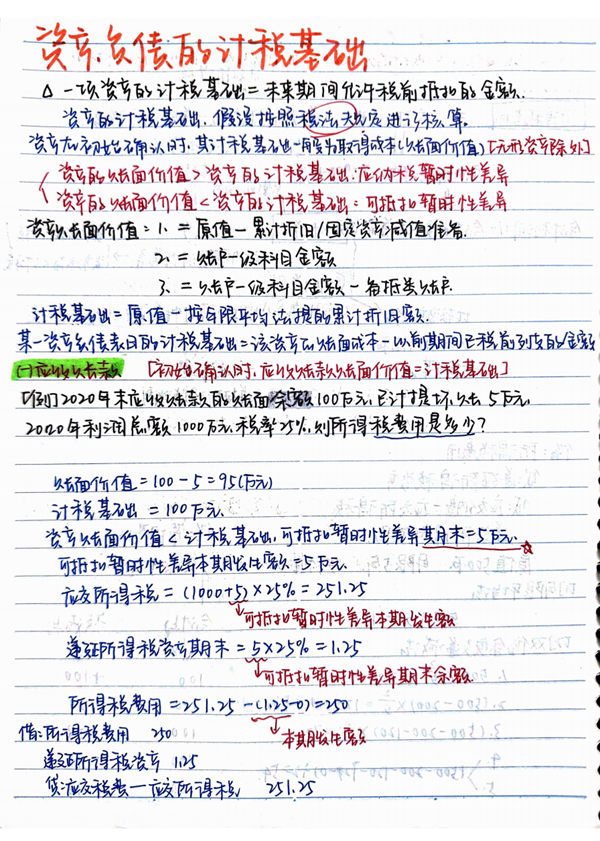 资产、负债的计税基础
△ 一项资产的计税基础=未来期间允许税前抵扣的金额.
资产的计税基础,假设按照税法规定进行核算。
资产在初始确认时,其计税基础一般为取得成本(账面价值)[无形资产除外]
资产的账面价值>资产的计税基础:应纳税暂时性差异
资产的账面价值<资产的计税基础:可抵扣暂时性差异
资产账面价值:1. =原值-累计折旧/固定资产减值准备.
2. =账户一级科目金额
3. =账户一级科目金额-备抵类账户.
计税基础=原值-按年限平均法提的累计折旧额.
某一资产负债表日的计税基础=该资产的账面成本-以前期间已税前列支的金额
(一)应收账款 [初始确认时,应收账款账面价值=计税基础]
[例]2020年末应收账款的账面余额100万元,已计提坏账5万元.
2020年利润总额1000万元.税率25%,则所得税费用是多少?
账面价值=100-5=95(万元)
计税基础=100万元.
资产账面价值<计税基础,可抵扣暂时性差异其月末=5万元.
可抵扣暂时性差异本期发生额=5万元.
应交所得税=(1000+5)×25%=251.25
↳可抵扣暂时性差异本期发生额
递延所得税资产期末=5×25%=1.25
↳可抵扣暂时性差异期末余额
所得税费用=251.25-(1.25-0)=250
↳本期发生额
借:所得税费用 250
递延所得税资产 1.25
贷:应交税费一应交所得税 251.25